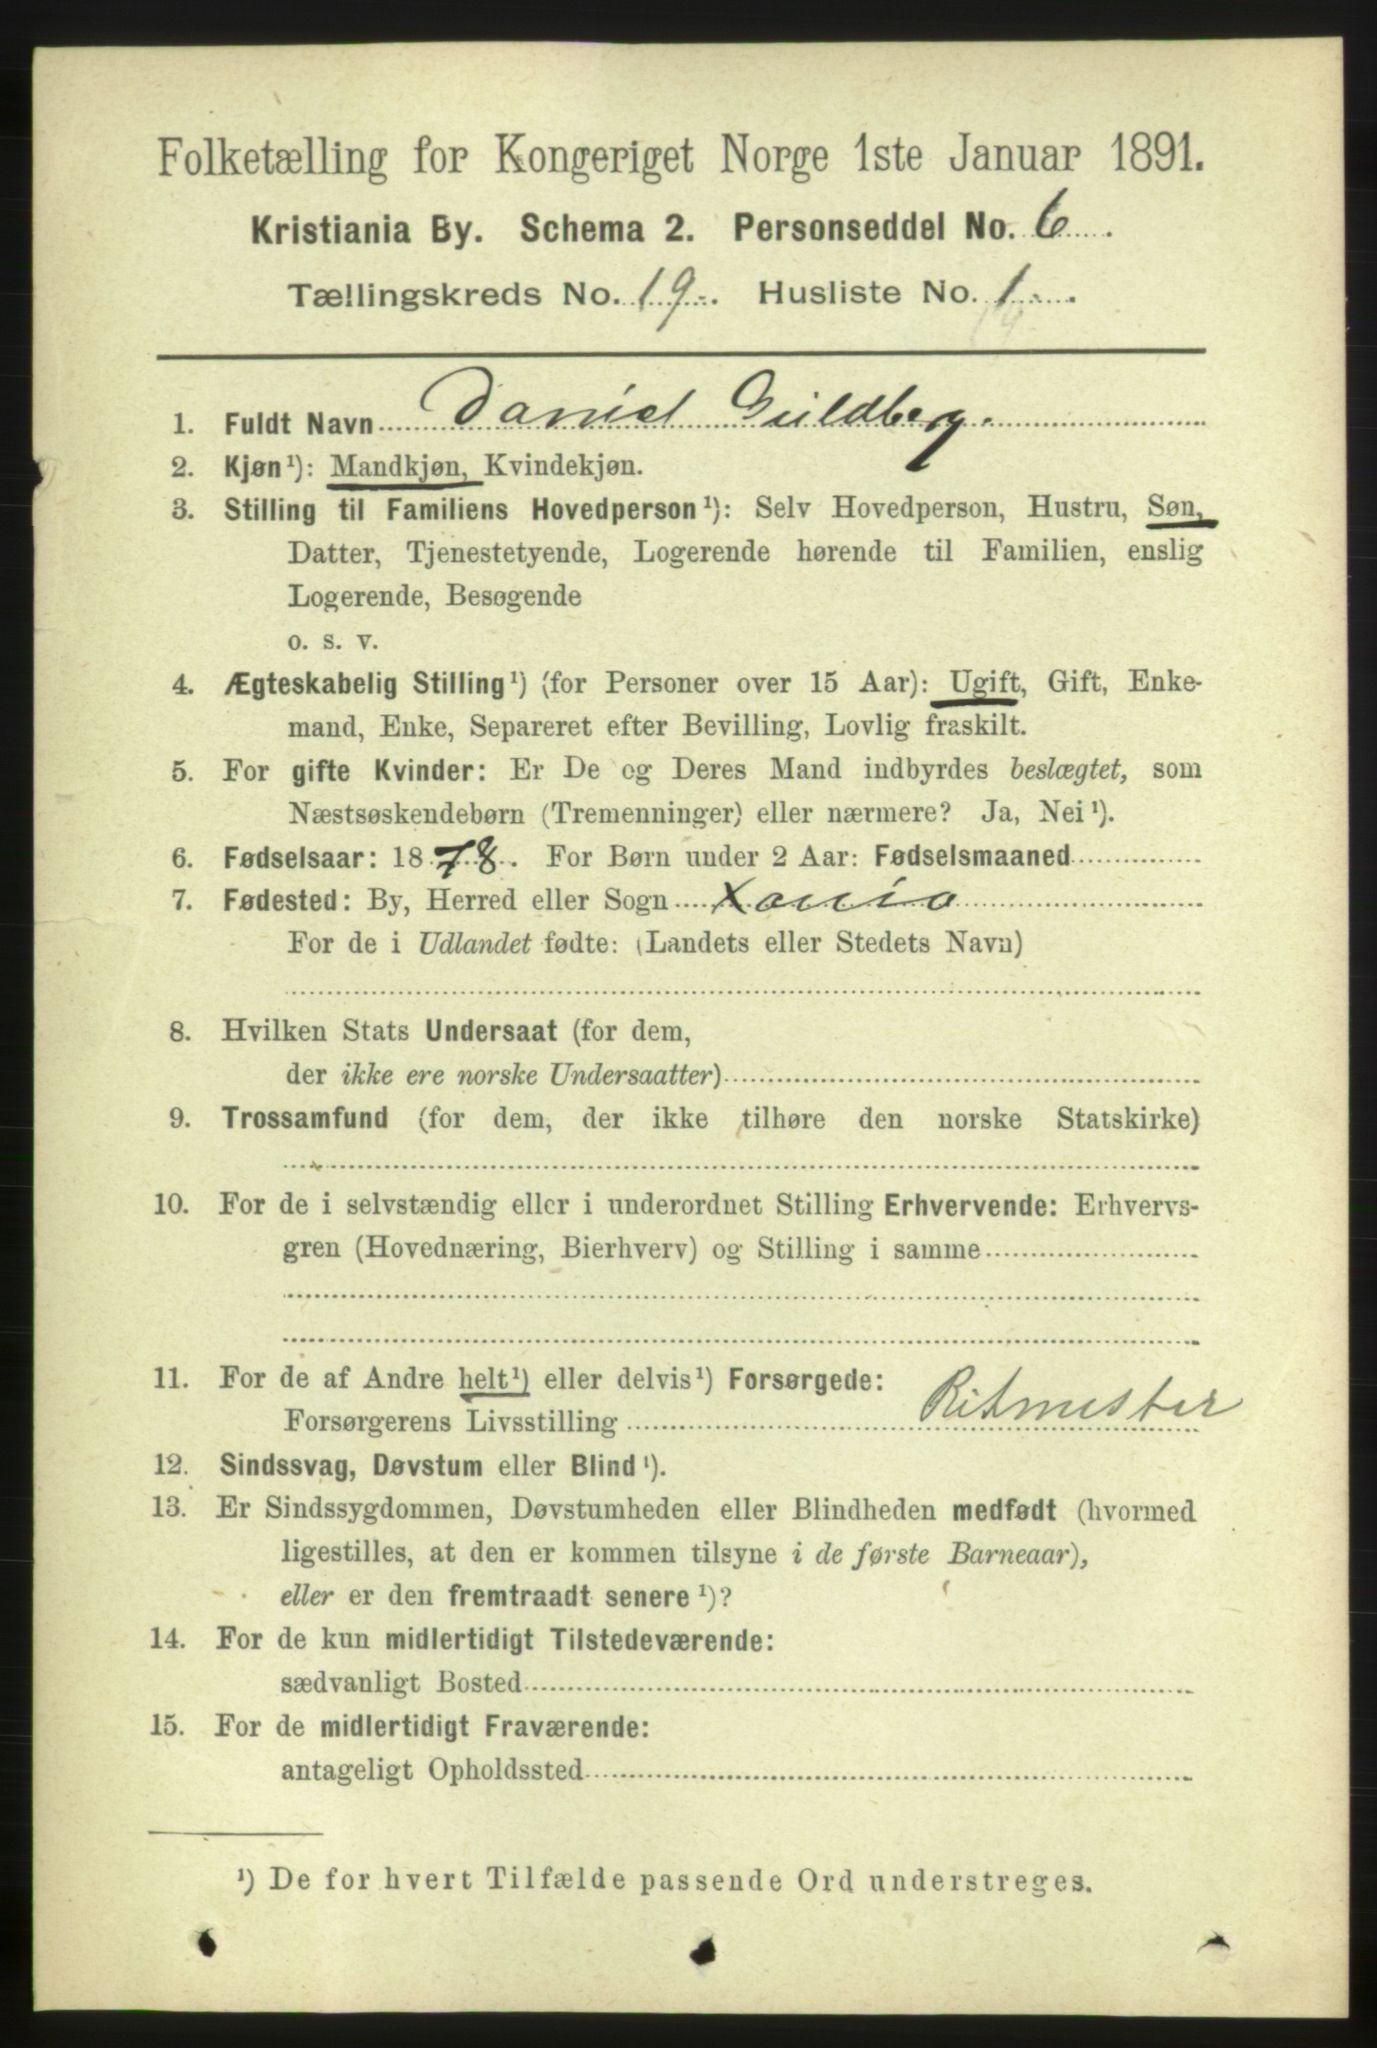 Folketælling for Kongeriget Norge 1ste Januar 1891.
Kristiania By. Schema 2. Personseddel No. 6.
Tællingskreds No. 19. Husliste No. 1.
1. Fuldt Navn Daniel Guldberg.
2. Kjøn¹): Mandkjøn, Kvindekjøn.
3. Stilling til Familiens Hovedperson¹): Selv Hovedperson, Hustru, Søn,
Datter, Tjenestetyende, Logerende hørende til Familien, enslig
Logerende, Besøgende
o. s. v.
4. Ægteskabelig Stilling¹) (for Personer over 15 Aar): Ugift, Gift, Enke-
mand, Enke, Separeret efter Bevilling, Lovlig fraskilt.
5. For gifte Kvinder: Er De og Deres Mand indbyrdes beslægtet, som
Næstsøskendebørn (Tremenninger) eller nærmere? Ja, Nei¹).
6. Fødselsaar: 1878. For Børn under 2 Aar: Fødselsmaaned
7. Fødested: By, Herred eller Sogn Xania
For de i Udlandet fødte: (Landets eller Stedets Navn)
8. Hvilken Stats Undersaat (for dem,
der ikke ere norske Undersaatter)
9. Trossamfund (for dem, der ikke tilhøre den norske Statskirke)
10. For de i selvstændig eller i underordnet Stilling Erhvervende: Erhvervs-
gren (Hovednæring, Bierhverv) og Stilling i samme
11. For de af Andre helt¹) eller delvis¹) Forsørgede:
Forsørgerens Livsstilling Ritmester
12. Sindssvag, Døvstum eller Blind¹).
13. Er Sindssygdommen, Døvstumheden eller Blindheden medfødt (hvormed
ligestilles, at den er kommen tilsyne i de første Barneaar),
eller er den fremtraadt senere¹)?
14. For de kun midlertidigt Tilstedeværende:
sædvanligt Bosted
15. For de midlertidigt Fraværende:
antageligt Opholdssted
¹) De for hvert Tilfælde passende Ord understreges.